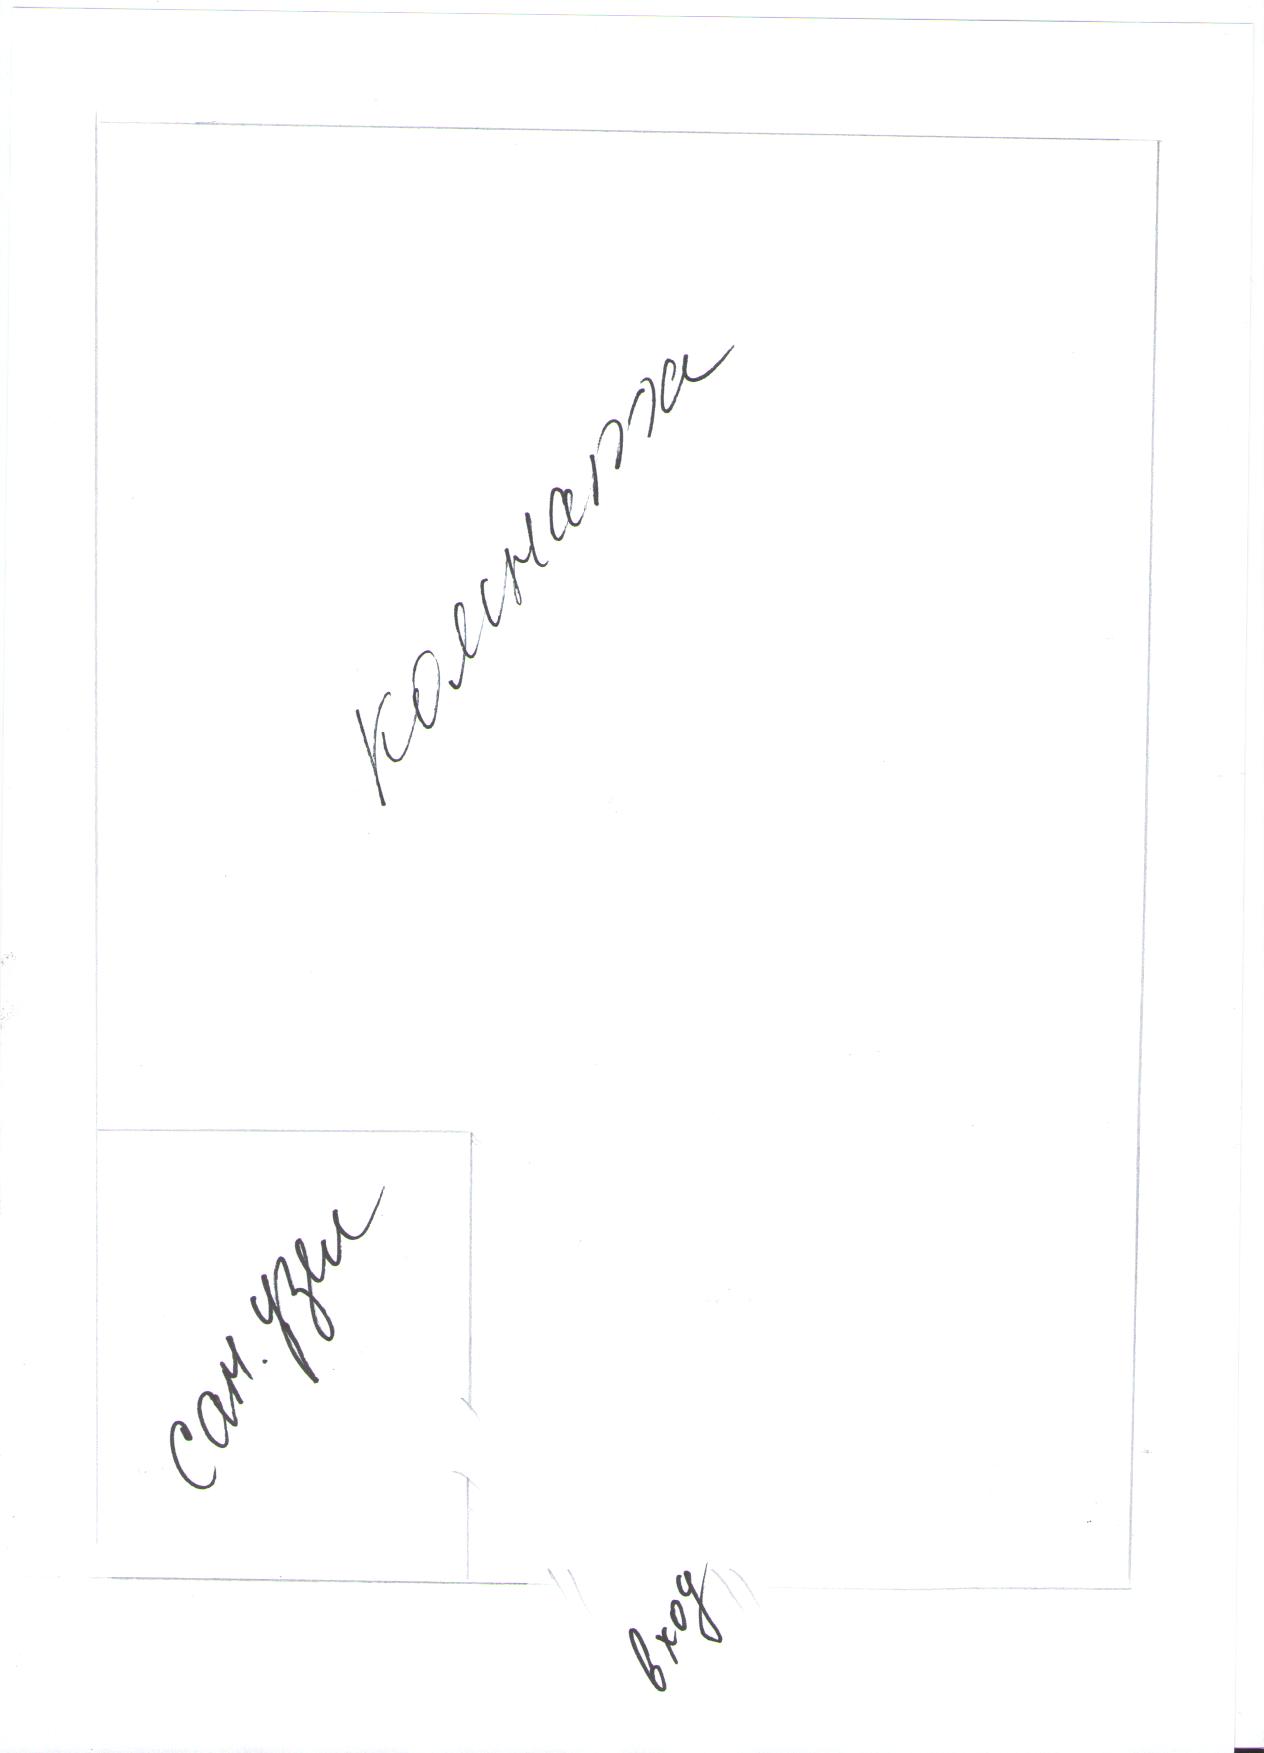 комната
Сан. узел
вход